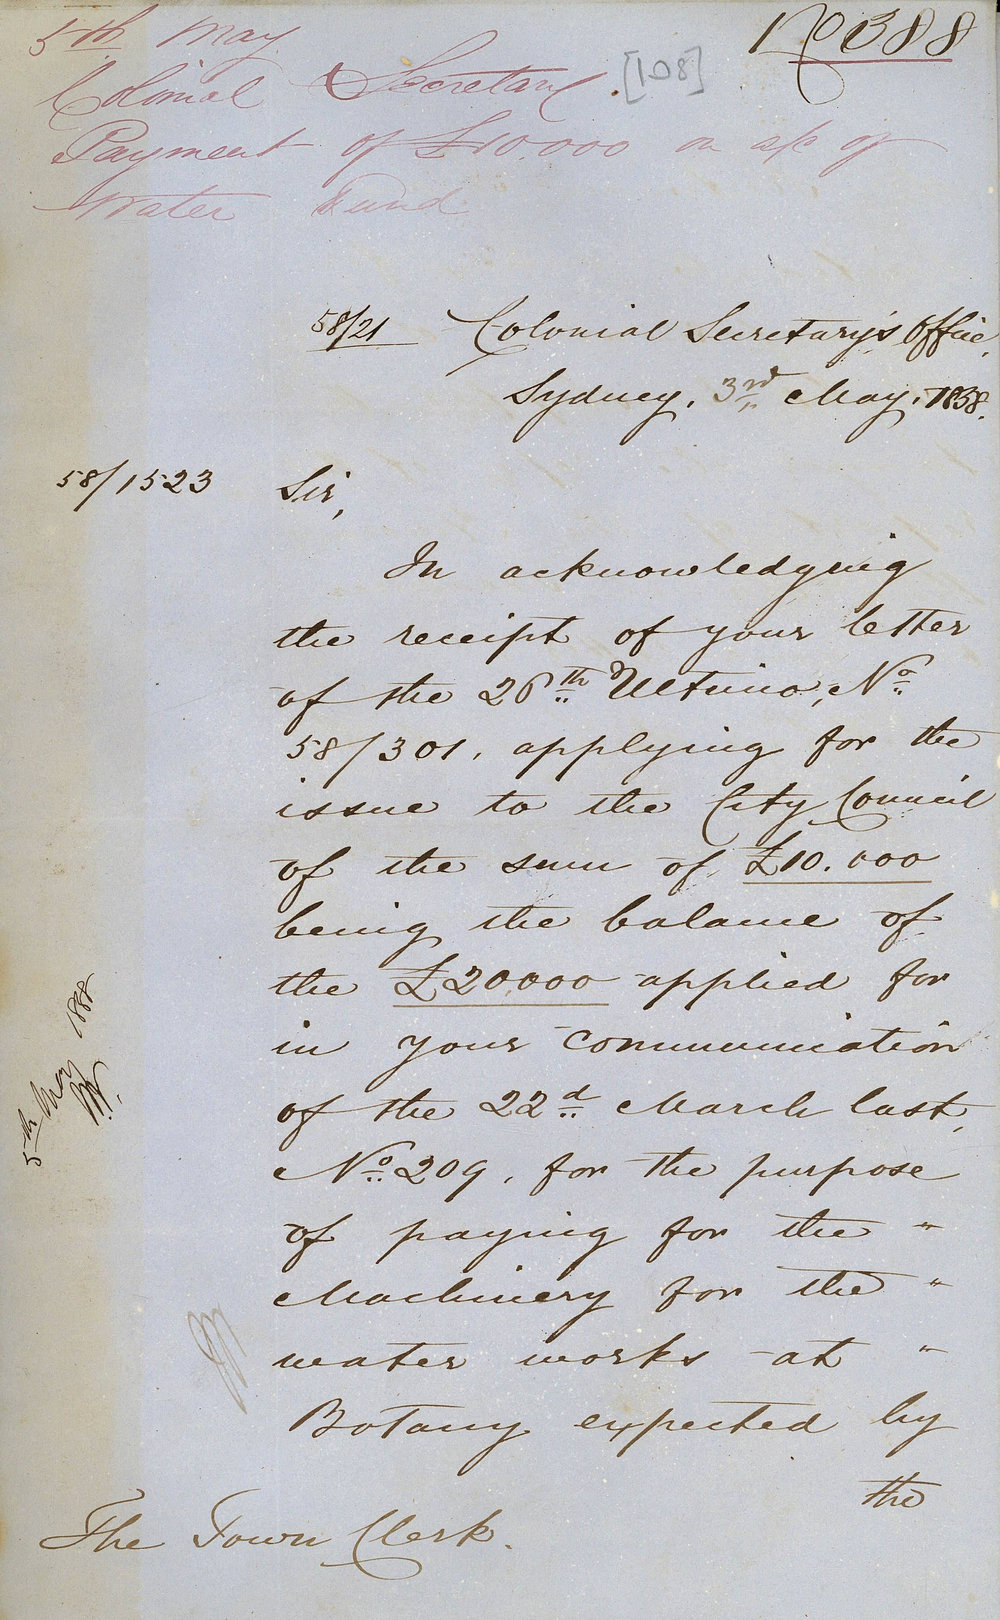 No 388
5th May
Colonial Secretary.
[108]
Payment of £10.000 on a/c of
Water Fund
58/21 Colonial Secretary's Office,
Sydney, 3rd May, 1858.
58/1523 Sir,
In acknowledging
the receipt of your letter
of the 26th Ultimo, No.
58/301, applying for the
issue to the City Council
of the sum of £10.000
being the balance of
the £20.000 applied for
in your communication
of the 22d March last,
No. 209, for the purpose
of paying for the "
Machinery for the "
water works at "
Botany expected by
the
The Town Clerk.
5th May 1858